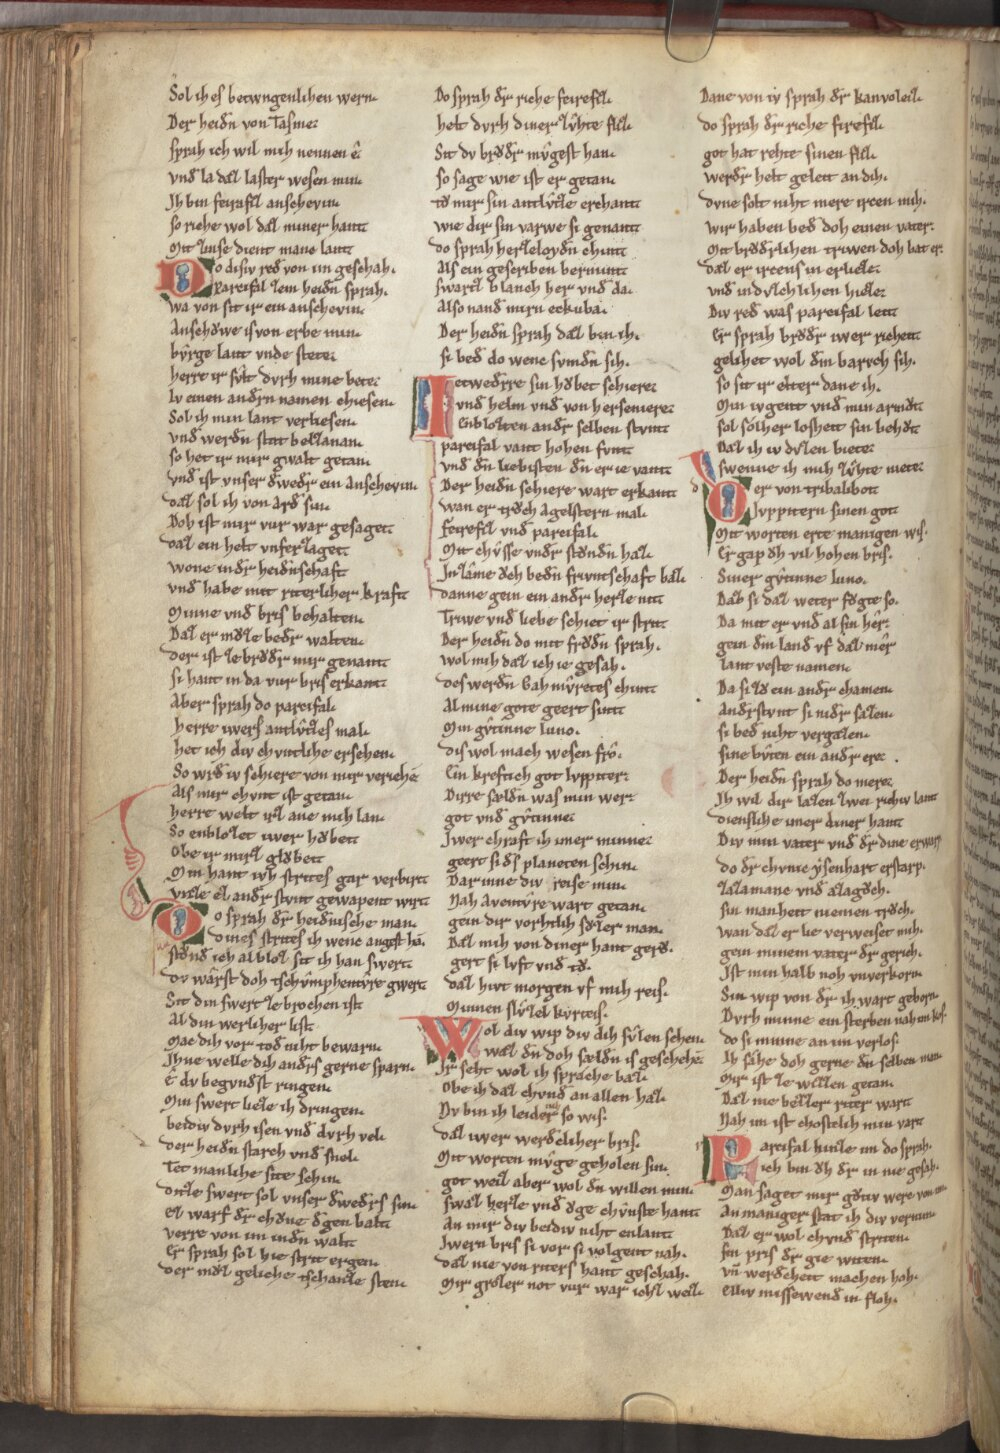 Sol ih es betwngenlihen wern.
Der heidn von Tasme.
sprah ich wil mih nennen ê.
vnd la daz laster wesen min.
Jh bin feirafiz anschevin.
so riche wol daz miner hant.
Mit zinse dient mane lant.
Do disiv red von im geschah.
Parcifal zem heidn sprah.
wa von sit ir ein anschevin.
Anschowe is von erbe min.
bvrge lant vnde stete.
herre ir svlt dvrh mine bete.
Iv einen andrn namen chiesen.
Sol ih min lant verliesen.
vnd werdn stat bealzanan.
so het ir mir gwalt getan.
vnd ist vnser dwedr ein Anschevin.
daz sol ih von ard sin.
Doh ist mir vur war gesaget.
daz ein helt vnferzaget.
wone in dr heidnschaft
vnd habe mit riterlicher kraft
Minne vnd bris behalten.
Daz er mvze bedr walten.
der ist ze brvdr mir genant.
si hant in da vur bris erkant.
Aber sprah do parcifal.
herre iwers antlvtzes mal.
het ich div chvntliche ersehen.
So wrd iv schiere von mir veriehe
Als mir chvnt ist getan.
herre welt irz ane mih lan.
So enblozet iwer hobet.
Obe ir mirz globet.
Min hant ivh strites gar verbirt.
vnze ez andr stvnt gewapent wirt.
Do sprah dr heidnische man.
dines strites ih wene angest ha.
stvnd ich al bloz sit ih han swert.
dv wærst doh tschvmphentvre gwert.
Sit din swert zebrochen ist.
Al din werlicher list.
Mac dih vor tod niht bewarn.
Jhne welle dih andrs gerne sparn.
ê dv begvndst ringen.
Min swert lieze ih dringen.
beidiv dvrh isen vnd dvrh vel.
der heidn starch vnd snel.
Tet manliche site schin.
ditze swert sol vnser dwedrs sin.
ez warf dr chvne dgen balt.
verre von im in dn walt.
Er sprah sol hie strit ergen.
der mvz geliche tschanze sten.
Do sprah dr riche feirefiz.
helt dvrh diner zvhte fliz.
Sit dv brvdr mvgest han.
so sage wie ist er getan.
tv mir sin antlvtze erchant.
wie dir sin varwe si genant.
do sprah herzeloydn chint.
Als ein gescriben bermint.
swartz blanch her vnd da.
Also nand mirn eckuba.
Der heidn sprah daz bin ih.
si bed do wenc svmdn sih.
Jetwedrre sin hobet schiere.
vnd helm vnd von herseniere.
Enblozten andr selben stvnt.
parcifal vant hohen fvnt.
vnd dn liebisten dn er ie vant.
Der heidn schiere wart erkant.
wan er trvch agelstern mal.
Feirefiz vnd parcifal.
Mit chvsse vndr stvndn haz.
Jn zame och bedn frivntschaft baz.
danne gein ein andr herze nit.
Triwe vnd liebe schiet ir strit.
Der heidn do mit frodn sprah.
wol mih daz ich ie gesah.
des werdn Gahmvretes chint.
Al mine gote geert sint.
Min gvtinne Juno.
dis wol mach wesen frô.
Ein kreftich got Ivppiter.
Dirre sældn was min wer.
got vnd gvtinne.
Jwer chraft ih imer minne.
geert si ds planeten schin.
Dar inne div reise min.
Nah Aventvre wart getan.
gein dir vorhtlich svzer man.
Daz mih von diner hant gerow.
gert si lvft vnd tov.
daz hivt morgen vf mih reis.
Minnen slvzel kvrteis.
Wol div wip div dih svlen sehen.
waz dn doh sældn is geschehe.
Jr seht wol ih spræche baz.
Obe ih daz chvnd an allen haz.
Nv bin ih leider so wis.
daz iwer werdeclicher bris.
Mit worten mvge geholen sin.
got weiz aber wol dn willen min.
swaz herze vnd oge chvnste hant.
An mir div beidiv niht enlant.
Jwern bris si vor si volgent nah.
daz nie von riters hant geschah.
Mir grozer not vur war ichz weiz.
Dane von iv sprah dr kanvoleiz.
do sprah dr riche firefiz.
got hat rehte sinen fliz.
werdr helt geleit an dih.
dvne solt niht mere ircen mih.
wir haben bed doh einen vater.
Mit brvdrlihen triwen doh bat er.
daz er ircens in erlieze.
vnd in dvtzchlichen hieze.
Div red was parcifal leit.
Er sprah brvdr iwer richeit.
gelihet wol dm barvch sih.
so sit ir elter dane ih.
Min ivgent vnd min armvt.
sol solher losheit sin behvt.
Daz ih iv dvzen biete.
swenne ich mih zvhte niete.
Der von tribalibot.
Jvppitern sinen got.
Mit worten erte manigen wis.
Er gap oh vil hohen bris.
Siner gvtinne Iuno.
Daz si daz weter fvgte so.
Da mit er vnd al sin hêr.
gein dm land vf daz mêr
lant veste namen.
Da si zv ein andr chamen.
Andrstvnt si nidr sazen.
si bed niht vergazen.
sine bvten ein andr ere.
Der heidn sprah do mere.
Jh wil dir lazen zwei richiv lant
diensliche imer diner hant
Div min vater vnd dr dine erwarp
do dr chvnic ysenhart erstarp.
zazamane vnd azagoch.
sin manheit niemen troch.
wan daz er lie verweiset mih.
gein minem vater dr gerich.
Jst min halb noh vnverkorn.
Sin wip von dr ih wart geborn.
Dvrh minne ein sterben nah im kos.
do si minne an im verlos.
Jh sæhe doh gerne dn selben man.
Mir ist ze wizzen getan.
Daz nie bezzer riter wart.
Nah im ist chostelih min vart.
Parcifal hinze im do sprah.
ich bin oh dr in nie gesah.
Man saget mir gvtiv werc von im.
An maniger stat ih div vernim.
Daz er wol chvnd striten.
sin pris dr gie witen.
vn werdcheit machen hoh.
elliv missewend in floh.